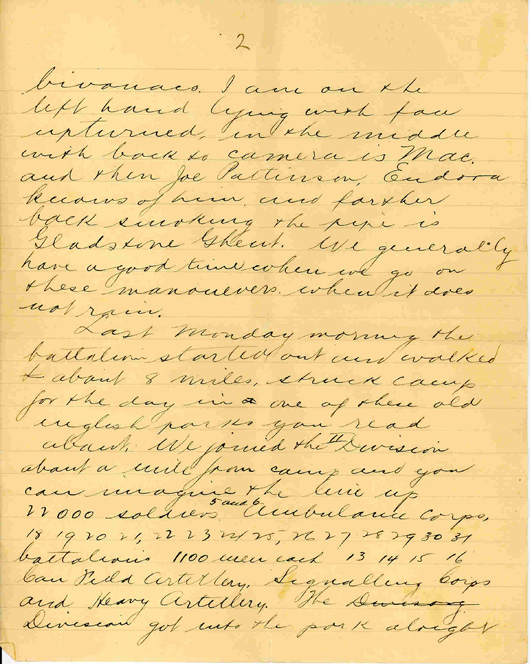 2
bivouacs. I am on the
left hand lying with face
upturned, in the middle
with back to camera is Mac.
and then Joe Pattinson, Eudora
knows of him, and farther
back smoking the pipe is
Gladstone Ghent. We generally
have a good time when we go on
these manouevers when it does
not rain.
Last Monday morning the
battalion started out and walked
+ about 8 miles, struck camp
for the day in a one of these old
english parks you read
about. We joined the II Division
about a mile from camp and you
can imagine the line up
5 and 6
22000 soldiers, Ambulance Corps,
18 19 20 21, 22 23 24 25, 26 27 28 29 30 31
battalions 1100 men each 13 14 15 16
Can Field Artillery, Signalling Corps
and Heavy Artillery. The
Division got into the park alright